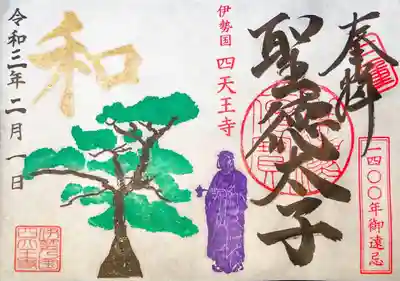 奉拝
聖徳太子
一四〇〇年御遠忌
伊勢国 四天王寺
和
令和三年二月一日